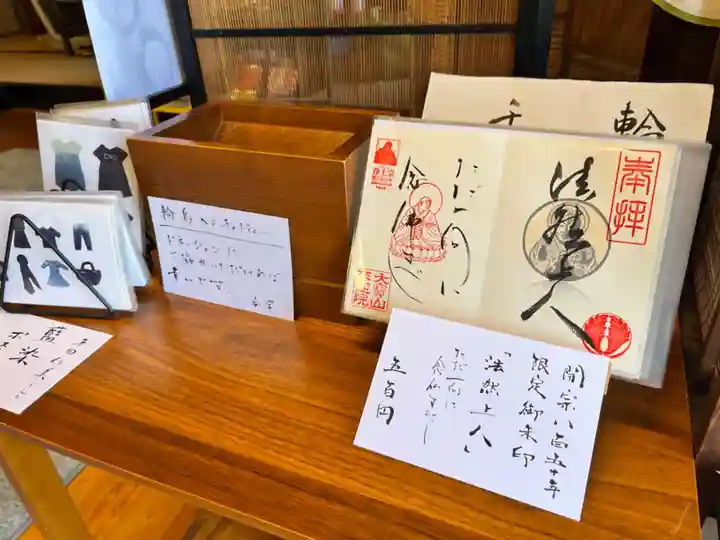 輪島へチャリティー
ドネーションに
ご協力いただければ
幸いです
輪
千
奉拝
法然上人
ただ一向に
念佛すべし
大寶山
開宗八百五十年
限定御朱印
「法然上人」
ただ一向に
念仏すべし
五百円
藍染